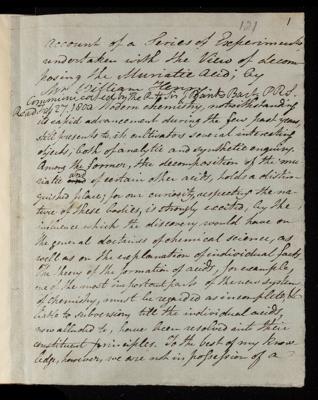 121
1
Account of a Series of Experiments,
undertaken with the View of decom-
posing the Muriatic Acid; by
Mr. William Henry.
Communicated by the Right Honble. Sir Joseph Banks Bart. P.R.S.
Read Feb. 27. 1800. Modern chemistry, notwithstanding
its rapid advancement during the few past years,
still presents to its cultivators several interesting
objects, both of analytic and synthetic enquiry.
Among the former, the decomposition of the mu-
riatic and of certain other acids, holds a distin-
guished place; for our curiosity, respecting the na-
ture of these bodies, is strongly excited, by the
influence which the discovery would have on
the general doctrines of chemical science, as
well as on the explanation of individual facts.
The theory of the formation of acids, for example,
one of the most important parts of the new system
of chemistry, must be regarded as incomplete, &
liable to subversion, till the individual acids,
now alluded to, have been resolved into their
constituent principles. To the best of my know-
ledge, however, we are not in possession of a